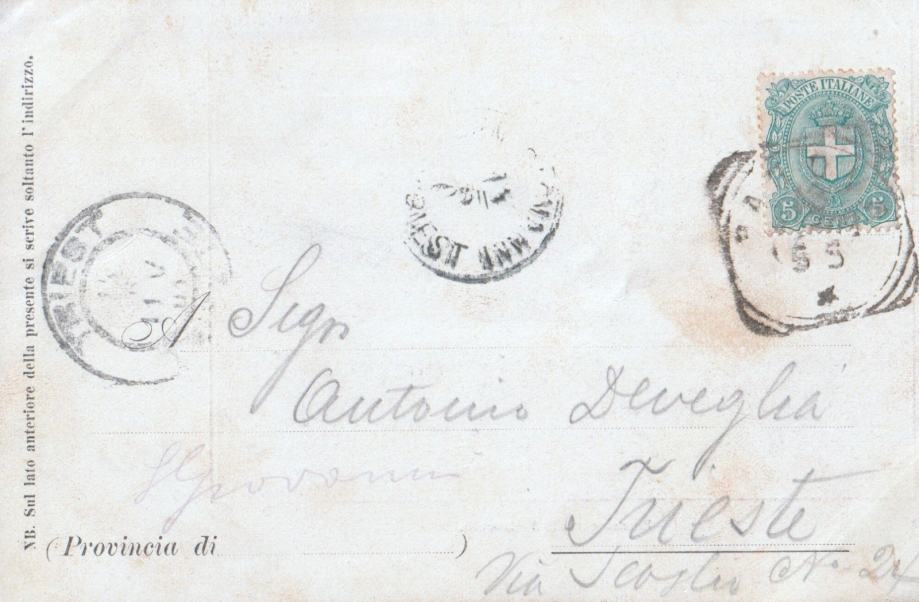 NB. Sul lato anteriore della presente si scrive soltanto l'indirizzo.
POSTE ITALIANE
5 CENT 5
TRIEST
A Sigr
Antonio Deveglia
S Giovanni
Trieste
(Provincia di )
Via Scoglio No 24